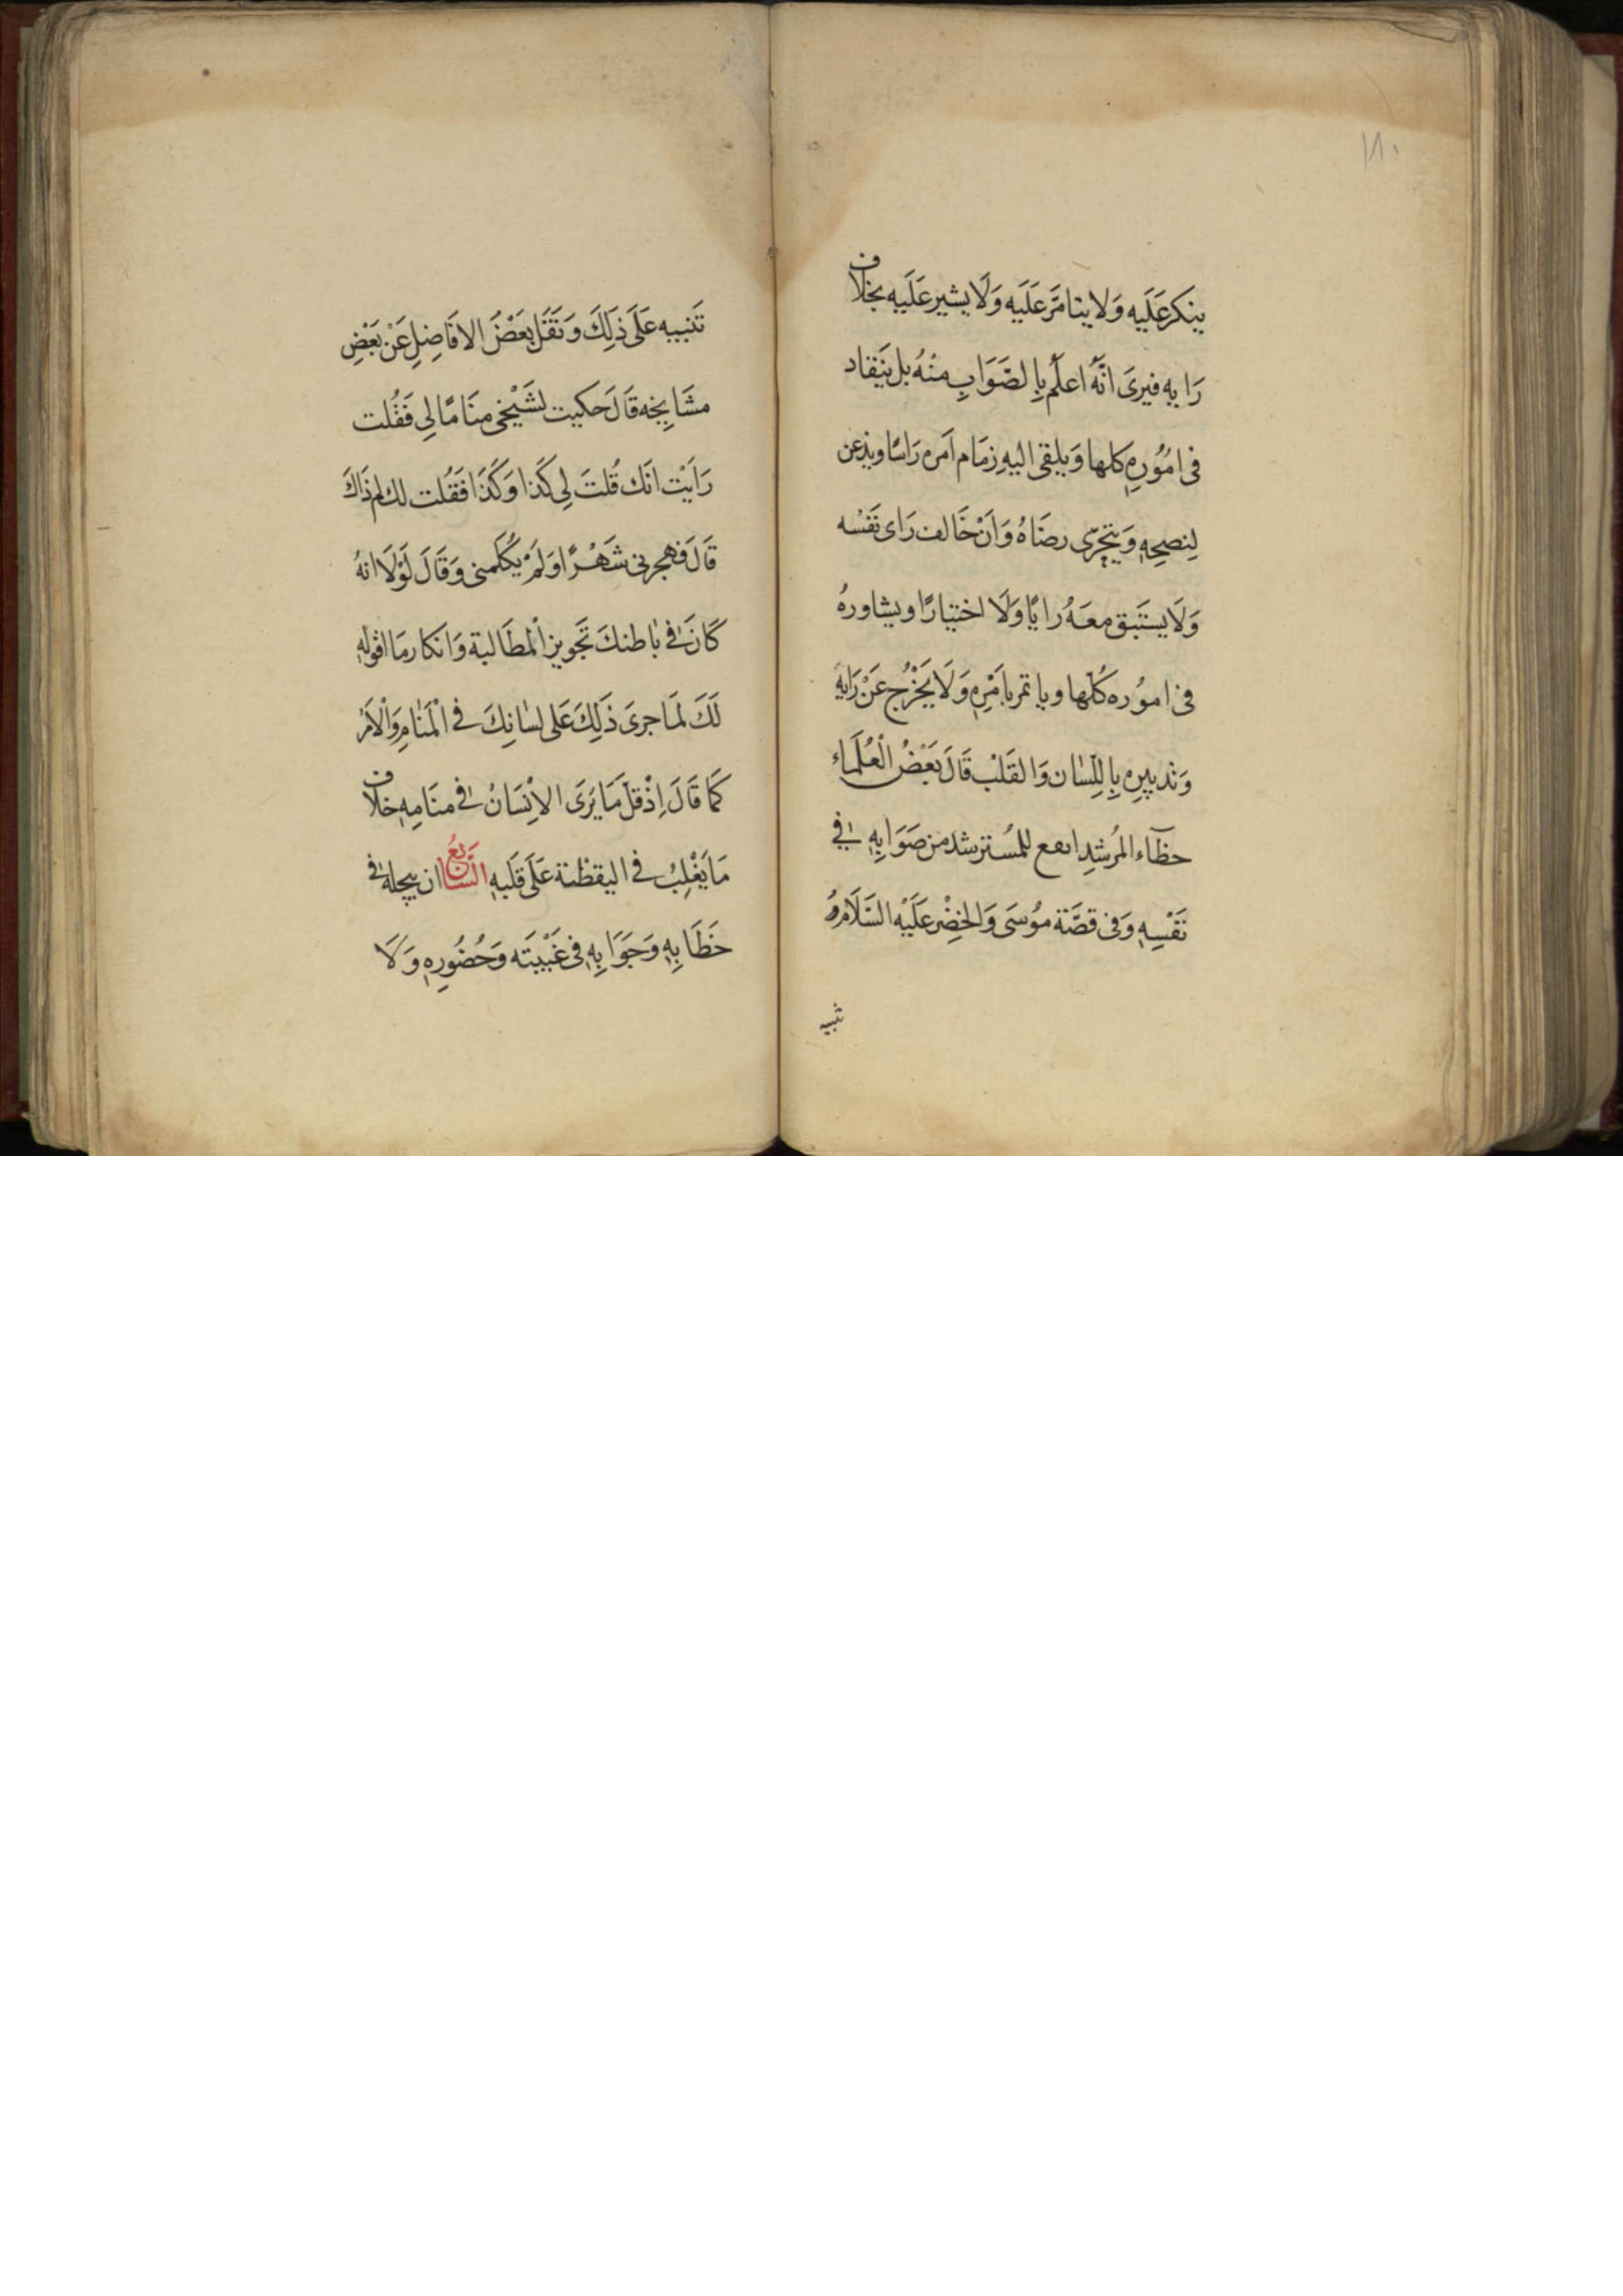 ١٨٠
ينكر عَلَيه وَلا يتامَّر عَلَيه وَلَا يشير عَلَيه بخلاف
رَايه فيرىَ انَّه اعلَم بِالصَّوَابِ منْهُ بل يَنقاد
فى امُوُرِهِ كلها وَيلقى اليهِ زمَام اَمره رَاسًا ويذعن
لِنصحِهِ وَيتحرّى رضَاهُ وَانْ خَالف رَاى نَفسْه
وَلَا يستَبق معَهُ رايًا وَلَا اختيارًا ويشاورهُ
فى امُوره كُلها وياتمر بامْرِهِ وَلَا يَخْرُج عَنْ رَايهِ
وَتدبيرِهِ بِاللِسٰان وَالقَلبْ قَالَ بَعْضُ الْعُلَمَاء
خطَآء المرُشدِ انفع للمُسترشد من صَوَابِهِ فى
نَفْسِهِ وَفى قصَّة موُسَى وَالخضِر عَلَيْه السَّلَامُ
تنبيه
تَنبيه عَلَى ذلِكَ وَنَقَل بَعْضَ الافَاضِلِ عَنْ بَعْضِ
مشَايخِه قَالَ حكيت لشَيْخى منَامًا لِى فَقُلت
رَايَتْ انَك قُلتَ لِى كَذا وَكَذَا فَقُلت لك لم ذَاكَ
قَالَ فَهجرنى شَهْرًا وَلَمْ يُكَلمنى وَقَالَ لَوْلَا انهُ
كَانَ فى بٰاطنكَ تَجويز الْمطَالبة وَانكار مَا اقولهِ
لَكَ لمَا جرىَ ذَلِكَ عَلى لسٰانِكَ فى الْمَنٰامِ وَالْاَمْرُ
كَمَا قَالَ اِذْ قلّ مَا يَرَى الاِنْسَانُ فى منَامِهِ خلاف
مَا يَغْلِبُ فى اليقظة عَلَى قَلبِهِ السَّابعُ ان يبجلهُ فى
خطَابِهِ وَجَوَابِهِ فى غَيْبَتَه وَحُضُورِهِ وَلَا